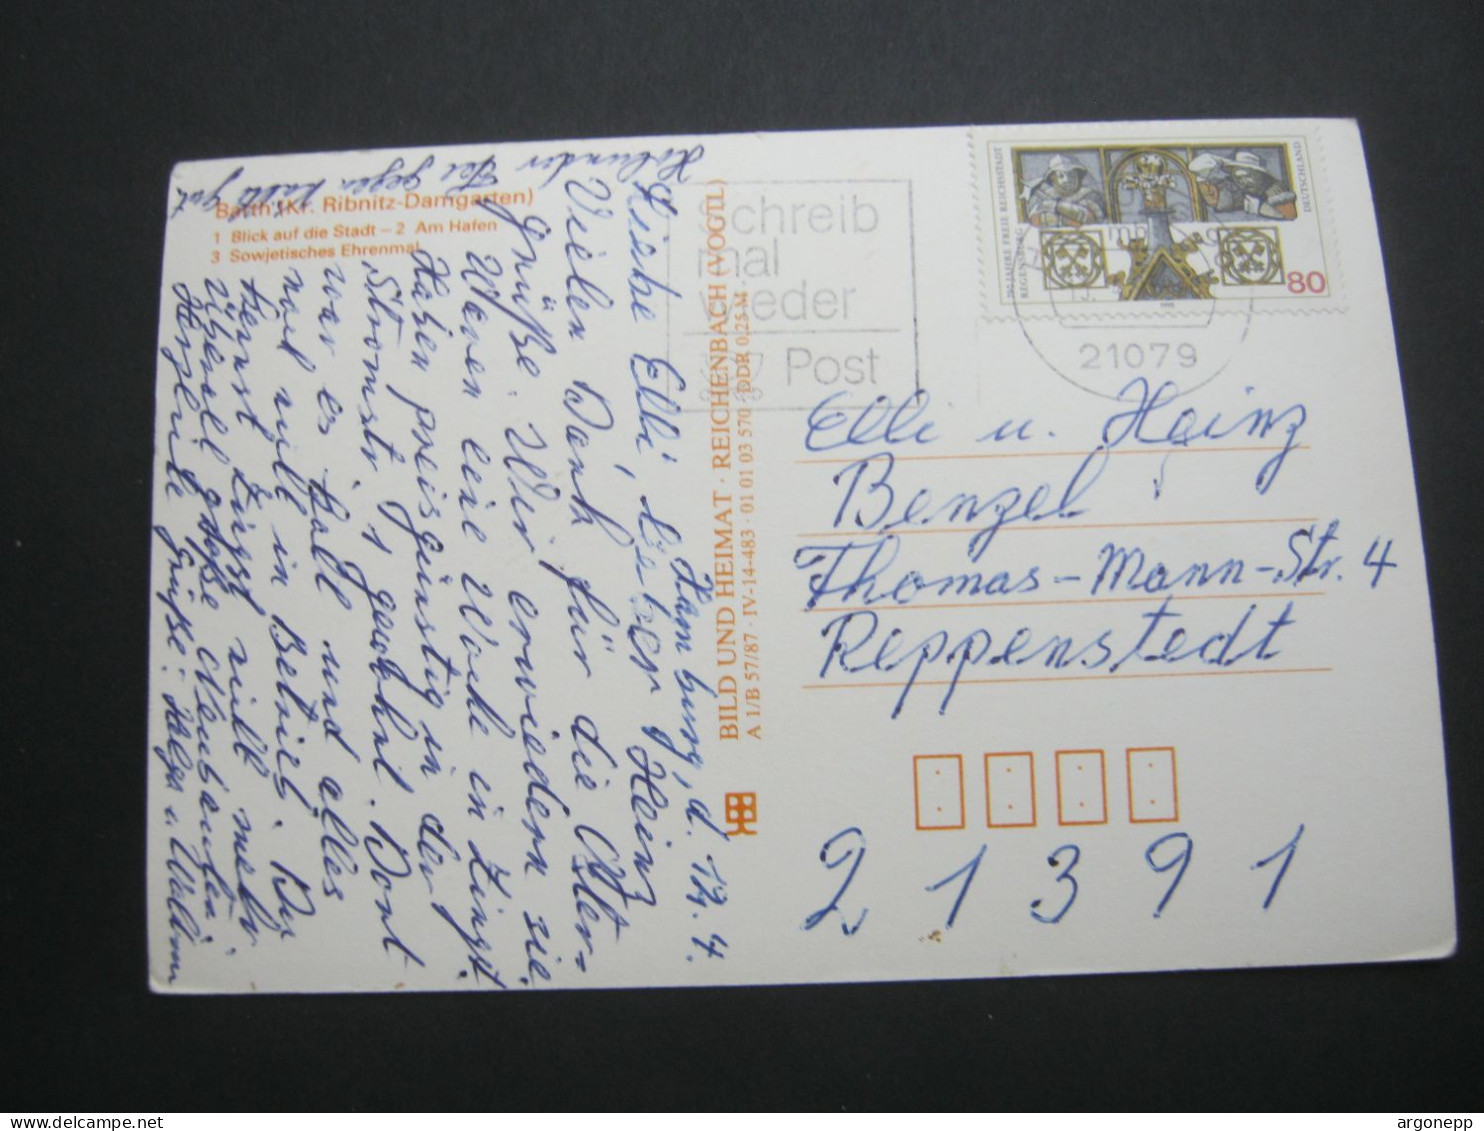 Barth (Kr. Ribnitz-Damgarten)
1 Blick auf die Stadt – 2 Am Hafen
3 Sowjetisches Ehrenmal
Holunder Tee gegen
gut
Hamburg, d. 17. 4.
Liebe Elli, lieber Heinz
Vielen Dank für die Oster=
grüße. Wir erwiedern sie.
Waren eine Woche in Zingst.
Haben preisgünstig in der
Stromstr. 1 gewohnt. Dort
war es kalt und alles
noch nicht in Betrieb. Du
kennst Zingst nicht mehr
überall große Neubauten
Herzliche Grüße: Helga u. Waldemar
BILD UND HEIMAT · REICHENBACH (VOGTL)
A 1/B 57/87 · IV-14-483 · 01 01 03 570 · DDR 0,25 M
Schreib
mal
wieder
Post
750 JAHRE FREIE REICHSSTADT
REGENSBURG
DEUTSCHLAND
80
21079
Elli u. Heinz
Benzel
Thomas-Mann-Str. 4
Reppenstedt
21391
argonepp